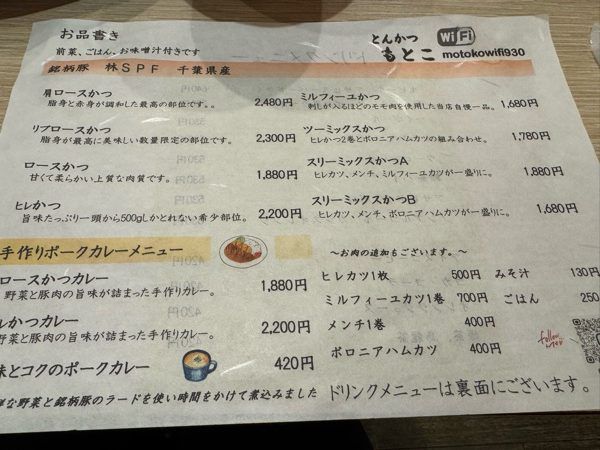 お品書き
前菜、ごはん、お味噌汁付きです
とんかつ
もとこ
WiFi
motokowifi930
銘柄豚 林SPF 千葉県産
肩ロースかつ
脂身と赤身が調和した最高の部位です。。 2,480円
リブロースかつ
脂身が最高に美味しい数量限定の部位です。 2,300円
ロースかつ
甘くて柔らかい上質な肉質です。 1,880円
ヒレかつ
旨味たっぷり一頭から500gしかとれない希少部位。 2,200円
ミルフィーユかつ
刺しが入るほどのモモ肉を使用した当店自慢一品。 1,680円
ツーミックスかつ
ヒレかつ2巻とボロニアハムカツの組み合わせ。 1,780円
スリーミックスかつA
ヒレカツ、メンチ、ミルフィーユカツが一盛りに。 1,880円
スリーミックスかつB
ヒレカツ、メンチ、ボロニアハムカツが一盛りに。 1,680円
手作りポークカレーメニュー
ロースかつカレー
野菜と豚肉の旨味が詰まった手作りカレー。 1,880円
レかつカレー
野菜と豚肉の旨味が詰まった手作りカレー。 2,200円
味とコクのポークカレー 420円
な野菜と銘柄豚のラードを使い時間をかけて煮込みました
〜お肉の追加もございます。〜
ヒレカツ1枚 500円 みそ汁 130円
ミルフィーユカツ1巻 700円 ごはん 250
メンチ1巻 400円
ボロニアハムカツ 400円
Follow me
ドリンクメニューは裏面にございます。